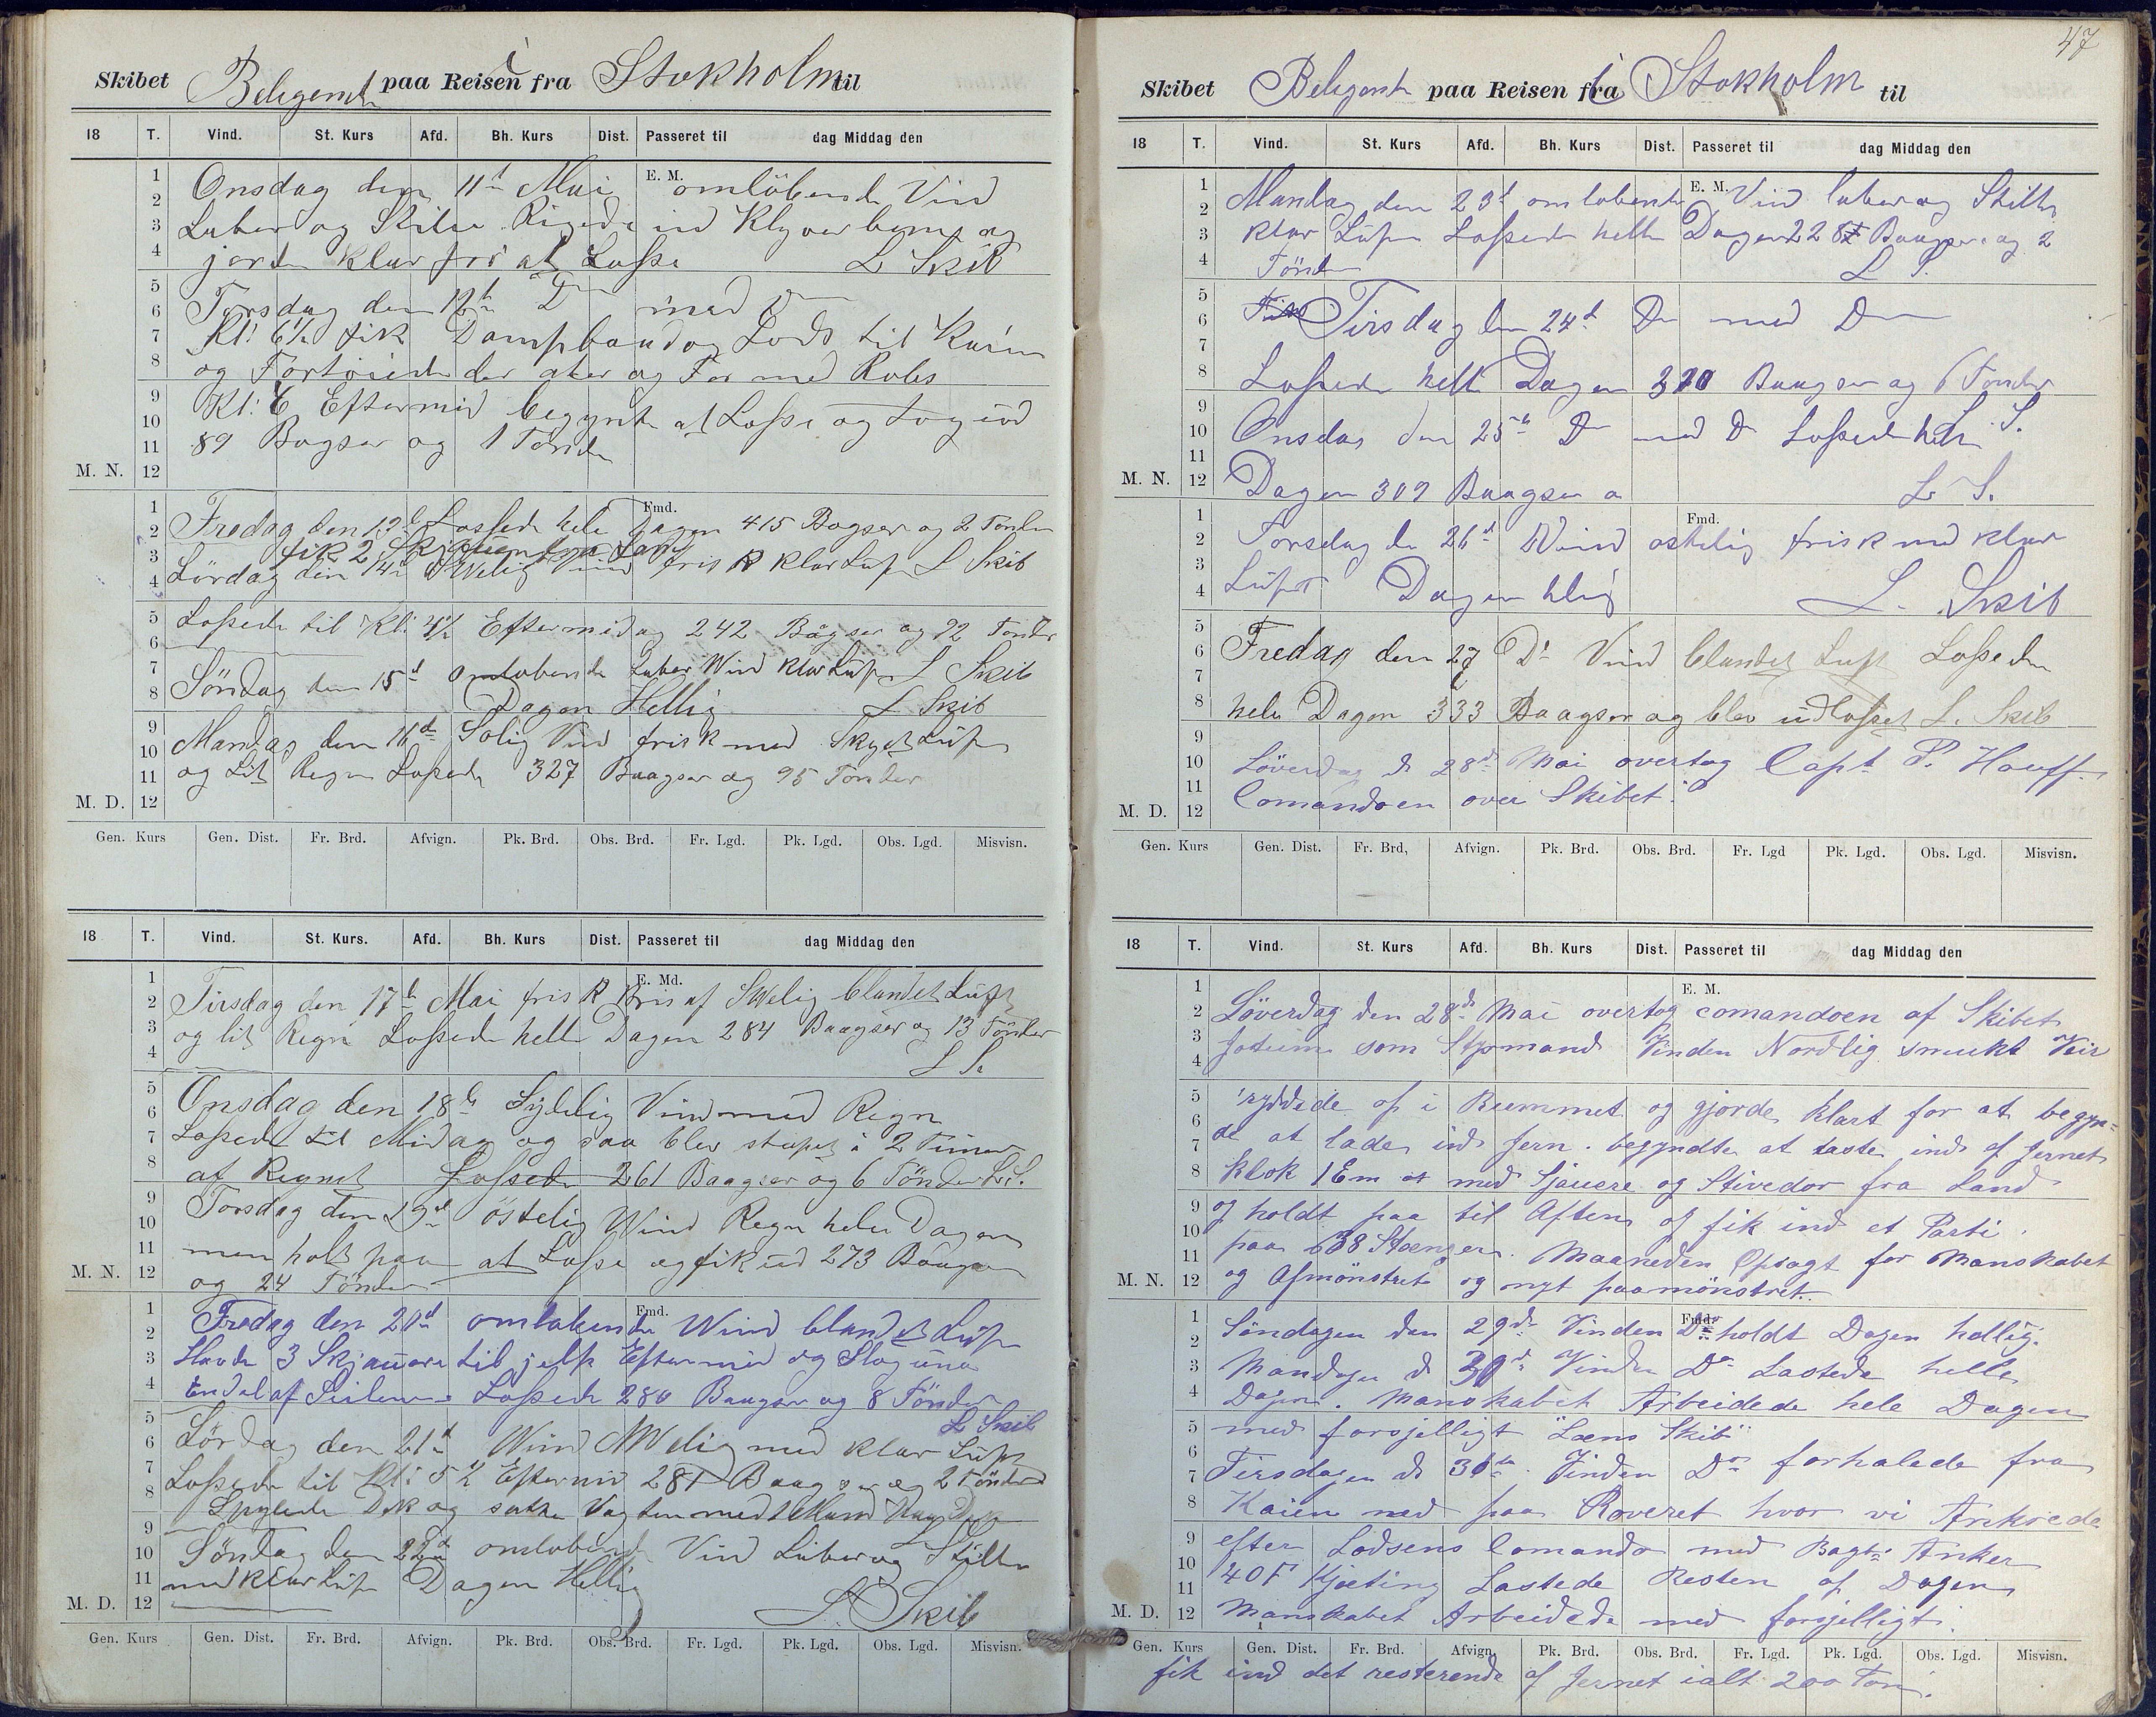 Skibet Beligerent paa Reisen i fra Stokholm til
18 T. Vind. St. Kurs Afd. Bh. Kurs Dist. Passeret til dag Middag den
E. M.
Onsdag den 11te Mai omlöbende Vind
Laber og Stille Rigede ind Klyverbom og
jorde klar for at Losse L Skib
Torsdag den 12te Do med Do
Kl: 6½ fik Dampbaad og Lods til Kaien
og Fortöiede der ater og For med Kobs
Kl: Eftermid begynte at Losse og tog ud
89 Bagser og 1 Tönde
M. N.
Fmd.
Fredag den 13d Lossede hele Dagen 415 Bagser og 2 Tönder
fik 2 Skjauere fra Land
Lördag den 14de SWelig Vind frisk klar Luft L Skib
Lossede til Kl: 4½ Eftermidag 242 Bagser og 72 Tönder
L Skib
Söndag den 15d omlobende Laber Wind klar Luft
Dagen Hellig L Skib
Mandag den 16de Solig Vind frisk med Skyet Luft
og Lit Regn Lossede 327 Baagser og 95 Tönder
M. D.
Gen. Kurs Gen. Dist. Fr. Brd. Afvign. Pk. Brd. Obs. Brd. Fr. Lgd. Pk. Lgd. Obs. Lgd. Misvisn.
18 T. Vind. St. Kurs. Afd. Bh. Kurs Dist. Passeret til dag Middag den
E. Md.
Tirsdag den 17de Mai frisk Bris af SWelig blandet Luft
og lit Regn Lossede helle Dagen 284 Baagser og 13 Tönder
L S.
Onsdag den 18de Sydelig Vind med Regn
Lossede til Midag og saa blev stopet i 2 Timer
af Regnet Lossede 261 Baagser og 6 Tönder L. S.
Torsdag den 19de östelig Wind Regn hele Dagen
men holt paa at Losse og fik ud 273 Baagser
og 24 Tönder
M. N.
Fmd.
Fredag den 20de omlobende Wind blandet Luft
Havde 3 Skjauere til jelp Eftermid og Slog under
Endel af Seilene Lossede 280 Baagser og 8 Tönder
L Skib
Lördag den 21d Wind NWelig med klar Luft
Lossede til Kl: 5½ Eftermid 281 Baagser og 2 Tönder
Spylede Dek og satte Vagten med 1 Mand Paa Dek
Söndag den 22de omlobende Vind Laber og Stille
med klar Luft Dagen Hellig
L. Skib
M. D.
Gen. Kurs Gen. Dist. Fr. Brd. Afvign. Pk. Brd. Obs. Brd. Fr. Lgd. Pk. Lgd. Obs. Lgd. Misvisn.
47
Skibet Beligerent paa Reisen fra i Stokholm til
18 T. Vind. St. Kurs Afd. Bh. Kurs Dist. Passeret til dag Middag den
E. M.
Mandag den 23d omlobende Vind laber og Stille
klar Luft Lossede helle Dagen 228 Baagser og 2
Tönder L S.
Tirsdag den 24d Do med Do
Lossede helle Dagen 320 Baagser og 6 Tonder
L. S.
Onsdag den 25de Do med Do Lossede hele
Dagen 309 Baagser L. S.
M. N.
Fmd.
Torsdag de 26d Wind ostelig frisk med klar
Luft Dagen hlig L. Skib
Fredag den 27 Do Vind blandet Luft Lossede
hele Dagen 333 Baagser og blev udlosset L. Skib
Löverdag d 28de Mai overtog Capt P. Hauff
Comandoen over Skibet.
M. D.
Gen. Kurs Gen. Dist. Fr. Brd, Afvign. Pk. Brd. Obs. Brd. Fr. Lgd Pk. Lgd. Obs. Lgd. Misvisn.
18 T. Vind. St. Kurs Afd. Bh. Kurs Dist. Passeret til dag Middag den
E. M.
Löverdag den 28de Mai overtog comandoen af Skibet
som Styrmand Vinden Nordlig smukt Veir
ryddede op i Rummet og gjorde klart for at begyn=
de at lade ind Jern. begyndte at laste ind af Jernet
Klok 1 Em med Sjauere og Stivedor fra Land
og holdt paa til Aften og fik ind et Parti
paa 638 Stænger. Maaneden Opsagt for Manskabet
og Afmönstret og nyt paamönstret.
M. N.
Fmd.
Söndagen den 29de Vinden Do holdt Dagen hellig.
Mandagen d 30de Vinden Do Lastede helle
Dagen. Manskabet Arbeidede hele Dagen
med forsjelligt "Læns Skib"
Tirsdagen d 31de. Vinden Do forhalede fra
Kaien ned paa Roveret hvor vi Ankrede
efter Lodsens Comando med Bagb: Anker
40 F Kjæting Lastede Resten af Dagen
Manskabet Arbeidede med forsjelligt.
M. D.
Gen. Kurs Gen. Dist. Fr. Brd. Afvign Pk. Brd. Obs. Brd. Fr. Lgd. Pk. Lgd. Obs. Lgd. Misvisn.
fik ind det resterende af Jernet ialt 200 Ton.